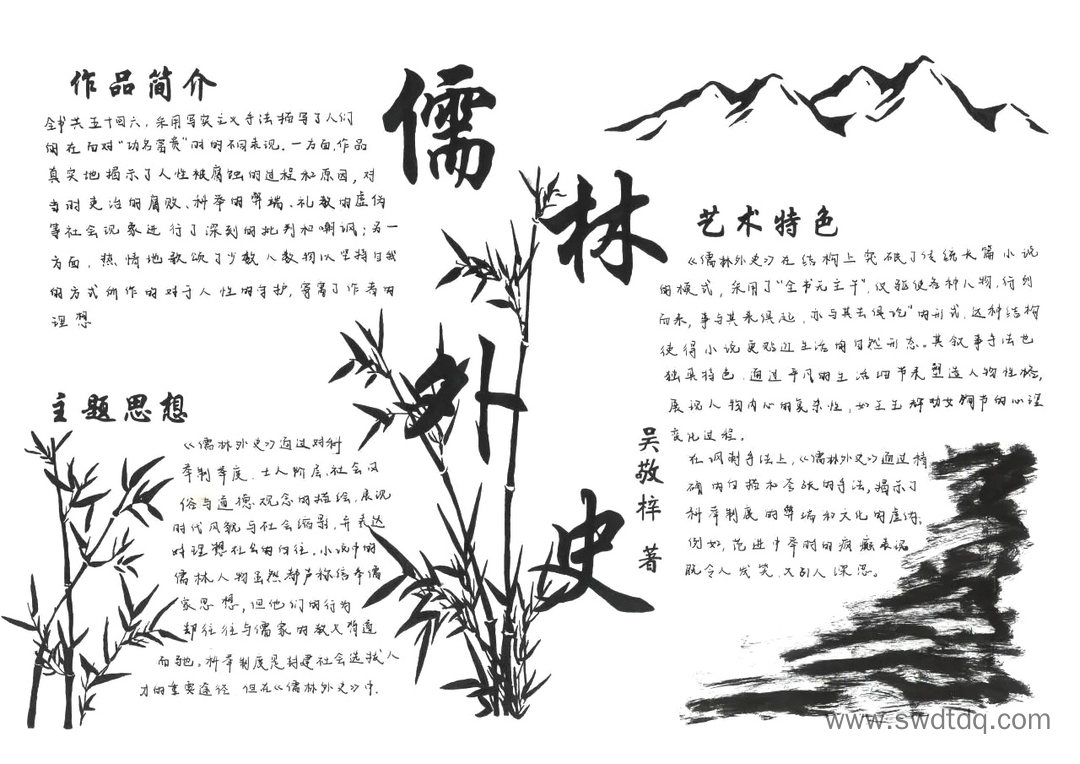 作品简介
全书共五十四六，采用写实主义手法描写了人们
们在面对“功名富贵”时的不同表现。一方面，作品
真实地揭示了人性被腐蚀的过程和原因，对
当时吏治的腐败、科举的弊端、礼教的虚伪
等社会现象进行了深刻的批判和嘲讽；另一
方面，热情地歌颂了少数人教物以坚持自我
的方式所作的对于人性的守护，寄寓了作者的
理想
主题思想
《儒林外史》通过对科
举制度、士人阶层、社会风
俗与道德观念的描绘，展现
时代风貌与社会缩影，并表达
对理想社会的向往。小说中的
儒林人物虽然都声称信奉儒
家思想，但他们的行为
却往往与儒家的教义背道
而驰。科举制度是封建社会选拔人
才的重要途径 但在《儒林外史》中.
儒林外史
吴敬梓 著
艺术特色
《儒林外史》在结构上突破了传统长篇小说
的模式，采用了“全书无主干”，仅驱使各种人物，行列
而来，事与其来俱起，亦与其去俱讫”的形式，这种结构
使得小说更贴近生活的自然形态。其叙事手法也
独具特色，通过平凡的生活细节来塑造人物性格，
展现人物内心的复杂性，如王玉辉劝女殉节的心理
变化过程。
在讽刺手法上，《儒林外史》通过精
确的白描和夸张的手法，揭示了
科举制度的弊端和文化的虚伪。
例如，范进中举时的疯癫表现
既令人发笑，又引人深思。
www.swdtdq.com